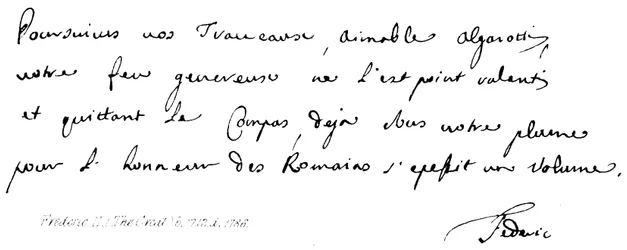 Poursuives vos Traveaux, aimable algarotti,
votre feu genereuse ne s'est point ralenti,
et quittant le Compas, deja sous votre plume
pour l'honneur des Romains s'epessit un Volume.
Frederic II. (The Great) b. 1712. d. 1786.
Federic